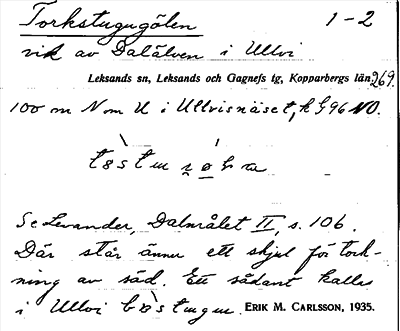 Torkstugugölen 1-2
vik av Dalälven i Ullvi
Leksands sn, Leksands och Gagnefs tg, Kopparbergs län 269.
100 m N om U i Ullvisnäset, k G96 NO.
Se Levander, Dalmålet II, s. 106.
Där står ännu ett skjul för tork-
ning av säd. Ett sådant kallas
i Ullvi
ERIK M. CARLSSON, 1935.